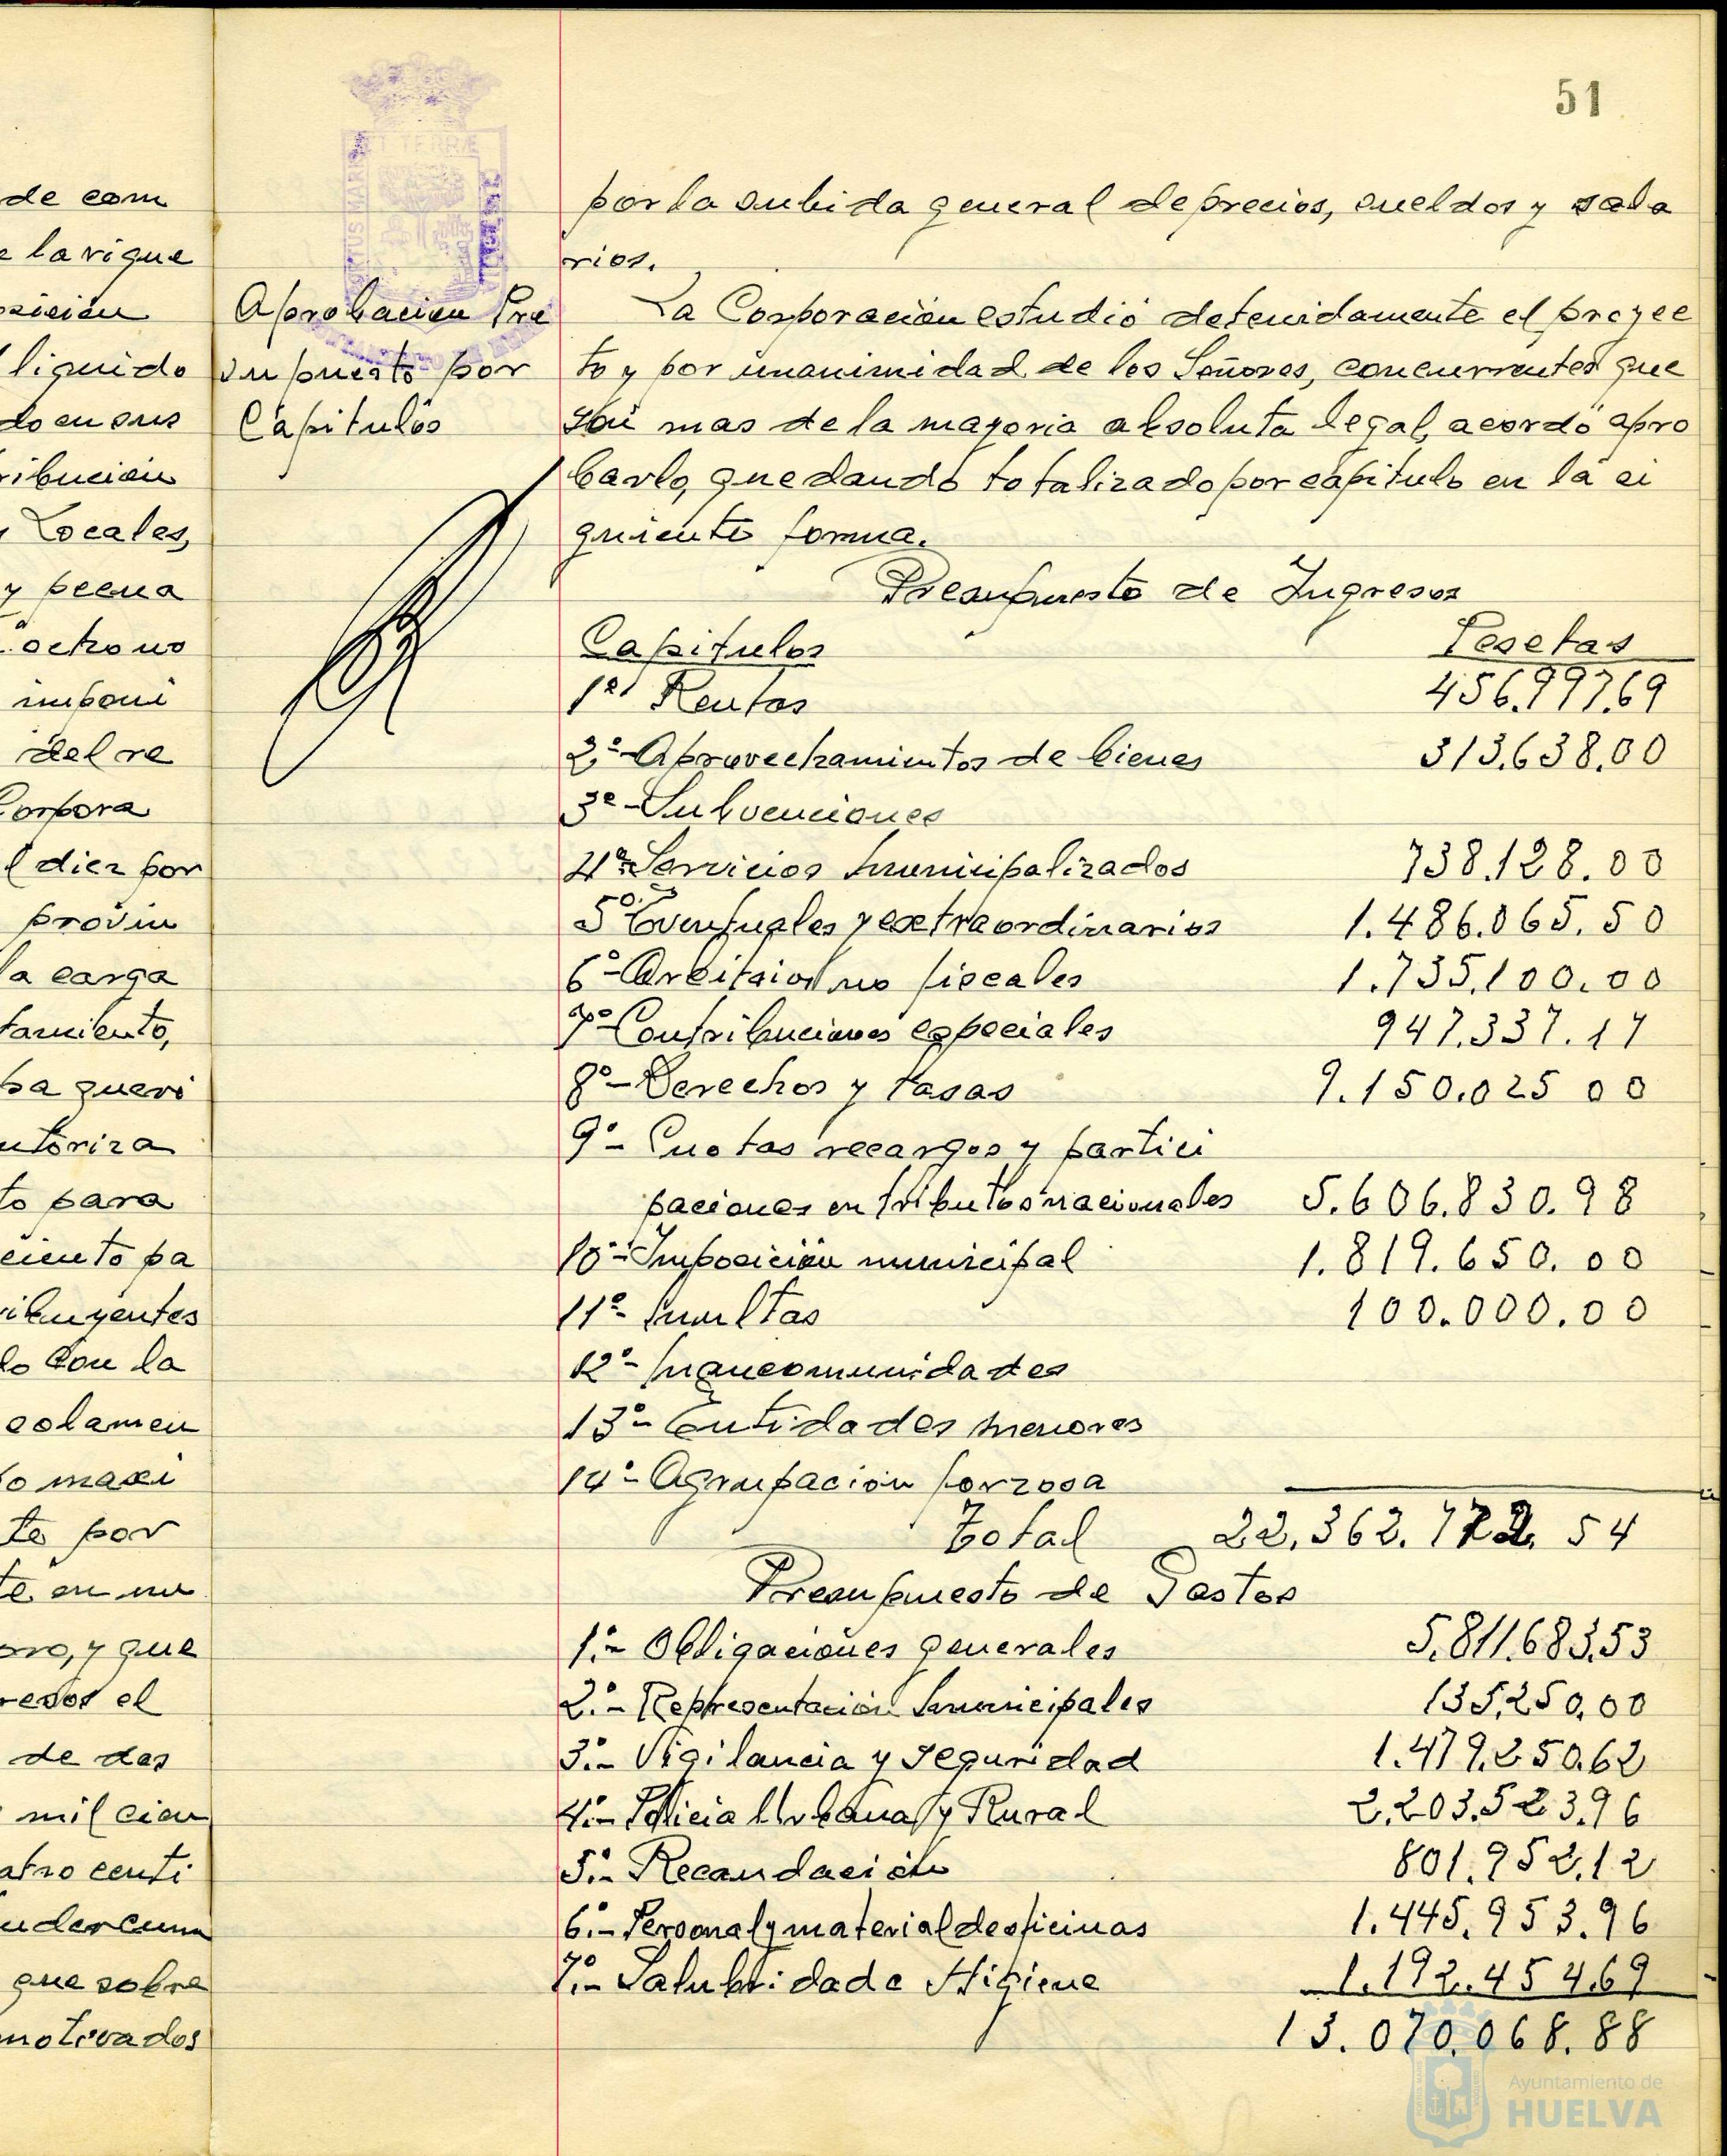 51
de com
la vigue
sicion
liquido
do en sus
ribucion
y Locales,
y pecua
octono
imponi
del re
Corpora
l diez por
provin
la carga
tamiento,
ba queri
utoriza
to para
ciento pa
ribuyentes
lo con la
solamen
o maxi
te por
te en nu
oro, y que
resos el
de dos
mil cien
atro centi
uder cum
que sobre
motivados
Aprobacion Pre
supuesto por
Capitulos
por la subida general de precios, sueldos y sala
rios.
La Corporación estudió detenidamente el proyec
to y por unanimidad de los Señores, concurrentes que
son mas de la mayoria absoluta legal, acordó apro
barlo, quedando totalizado por capitulo en la si
guiente forma.
Presupuesto de Ingresos
Capitulos Pesetas
1º Rentas 456.997.69
2º- Aprovechamientos de bienes 313.638.00
3º- Subvenciones
4º- Servicios municipalizados 738.128.00
5º Eventuales y extraordinarios 1.486.065.50
6º- Arbitrios no fiscales 1.735.100.00
7º- Contribuciones especiales 947.337.17
8º- Derechos y tasas 9.150.025 00
9º- Cuotas recargos y partici
paciones en tributos nacionales 5.606.830.98
10º- Imposición municipal 1.819.650.00
11º- Multas 100.000.00
12º- Mancomunidades
13º- Entidades menores
14º- Agrupación forzosa
Total 22.362.772.54
Presupuesto de Gastos
1º.- Obligaciones generales 5.811.683.53
2º.- Representación Municipales 135.250.00
3º.- Vigilancia y Seguridad 1.479.250.62
4º.- Policia Urbana y Rural 2.203.523.96
5º.- Recaudación 801.952.12
6º.- Personal y material de oficinas 1.445.953.96
7º.- Salubridad e Higiene 1.192.454.69
13.070.068.88
Ayuntamiento de
HUELVA